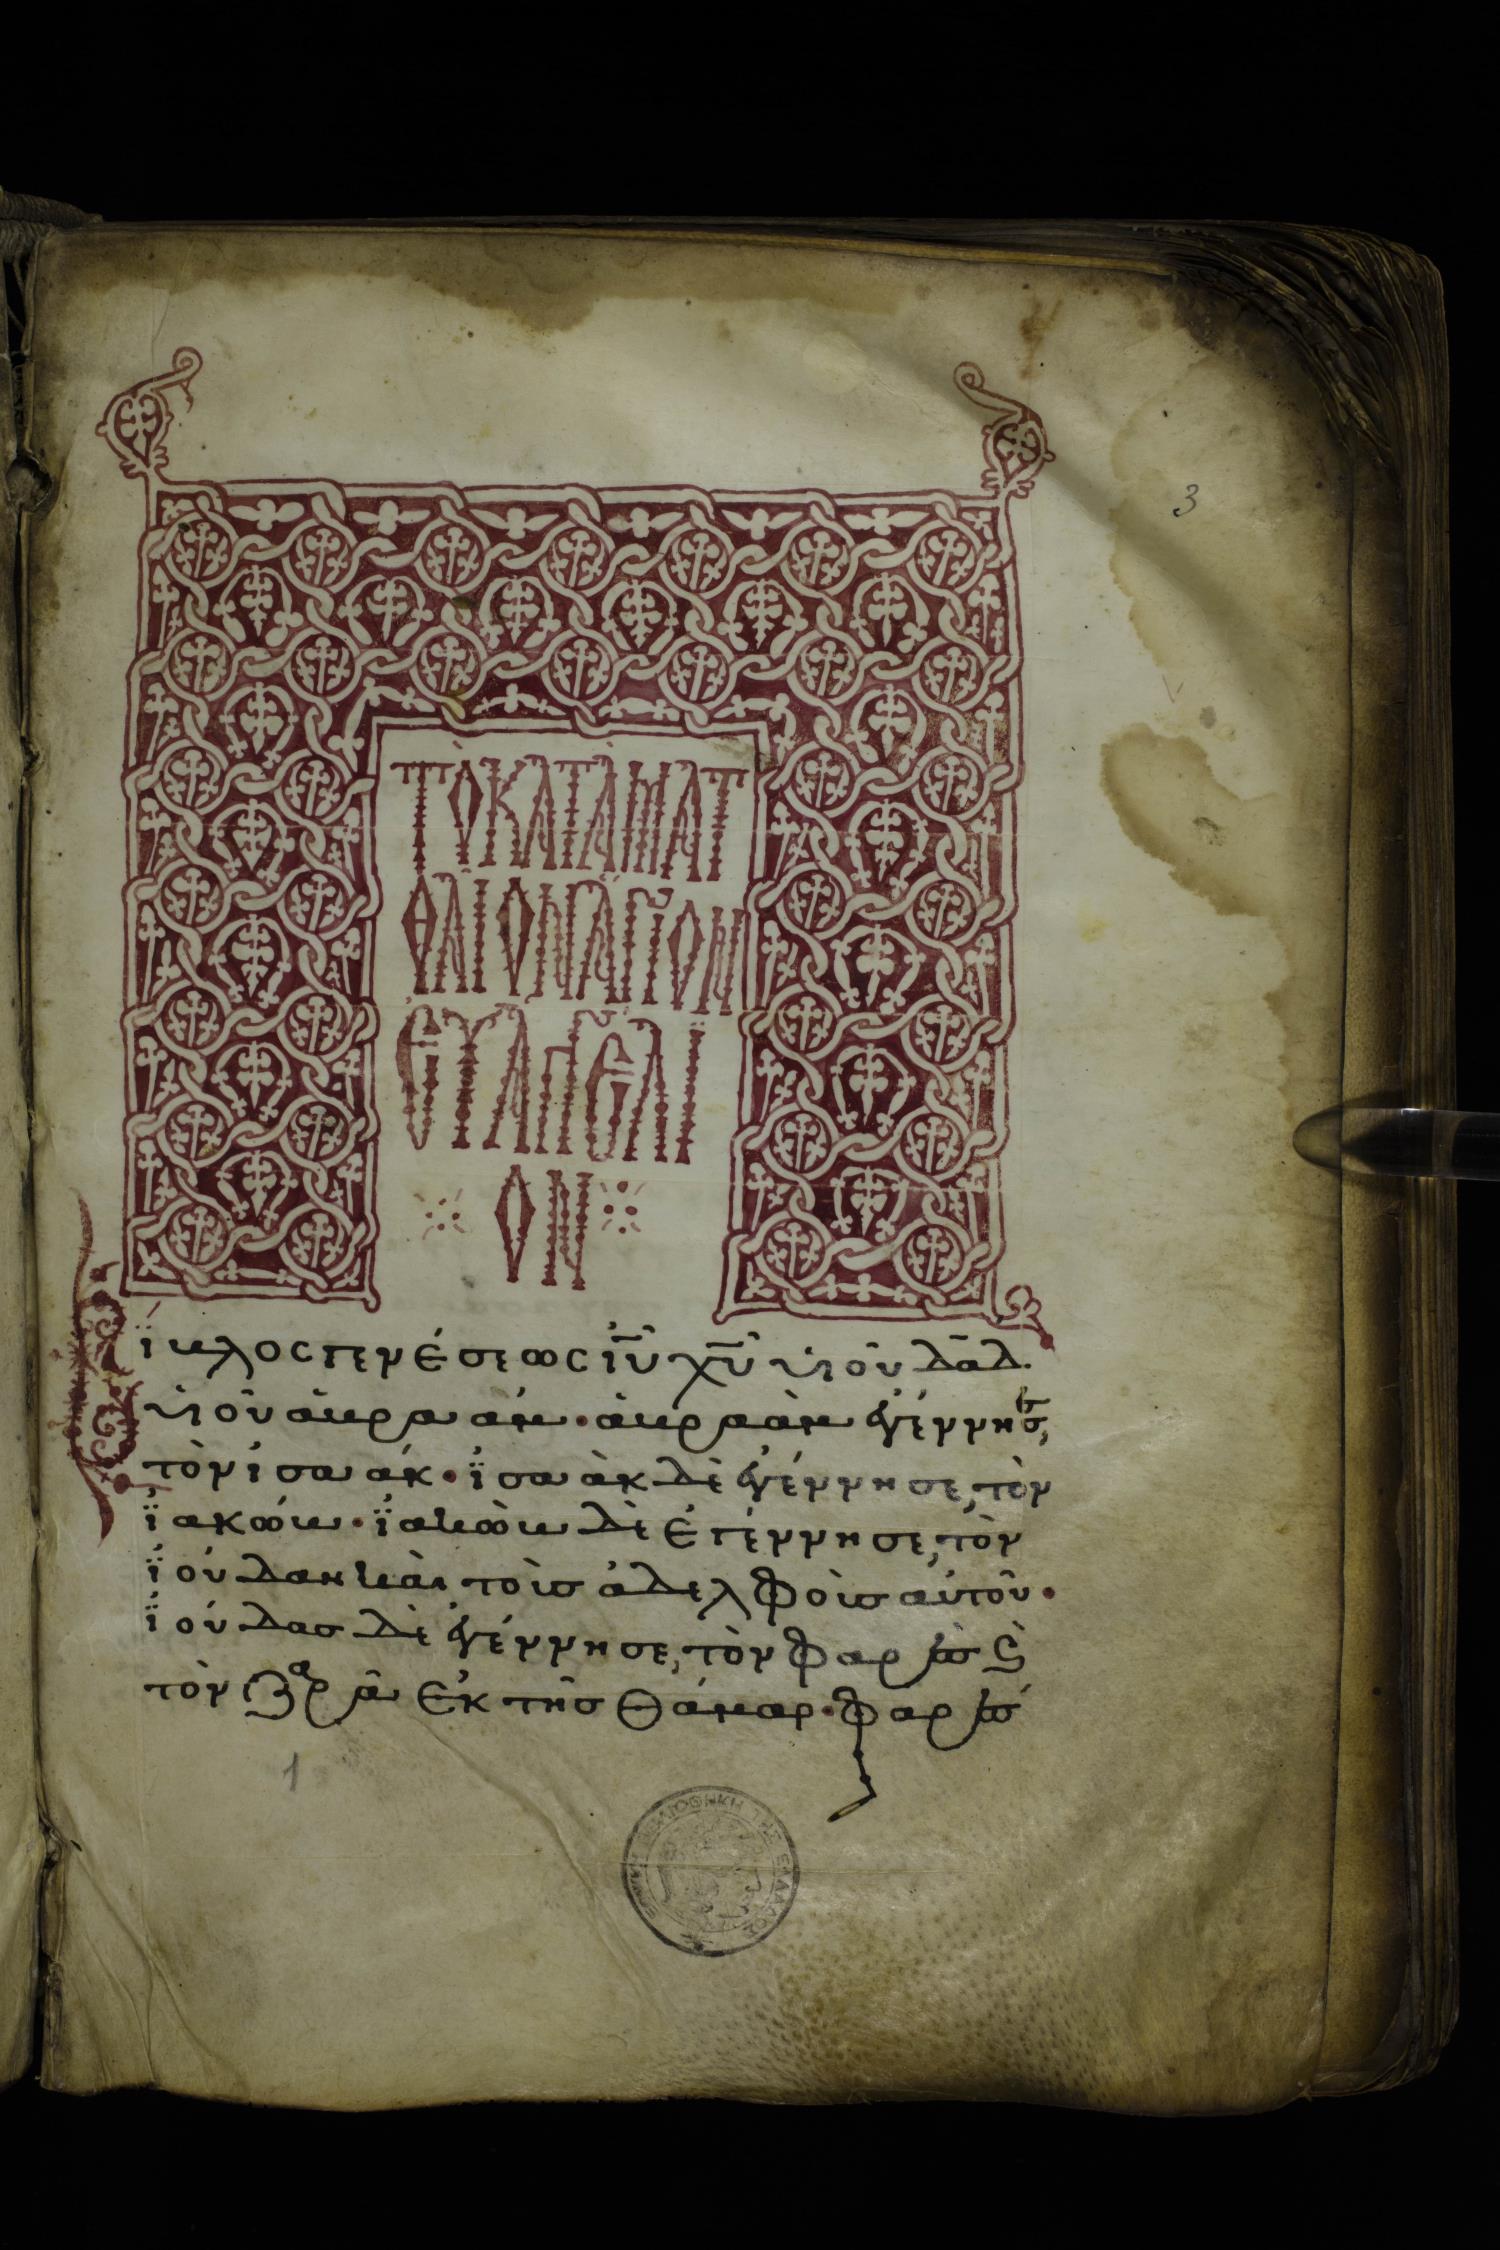 3
ΤὸΚΑΤᾺΜΑΤ
ΘΑῖΟΝἍΓΙΟΝ
ΕΥ̓ΑΓΓΈΛΙ
ΟΝ
Βίβλος γενέσεως ἰ̅υ̅ χ̅υ̅ ὑιοῦ δ̅α̅δ̅.
ὑιοῦ ἀβραάμ · ἀβραὰμ ἐγέννησ
τὸν ἰσαάκ · ἰσαὰκ δὲ ἐγέννησε, τὸν
ϊακώβ · ϊακὼβ δὲ ἐγέννησε, τὸν
ϊούδαν καὶ τοὺσ ἀδελφοὺσ αὐτοῦ ·
ϊούδασ δὲ ἐγέννησε, τὸν φαρὲσ ϗ̀
τὸν ζαρᾶ ἐκ τῆσ θάμαρ · φαρέσ
1
ΕΘΝΙΚΗ ΒΙΒΛΙΟΘΗΚΗ ΤΗΣ ΕΛΛΑΔΟΣ